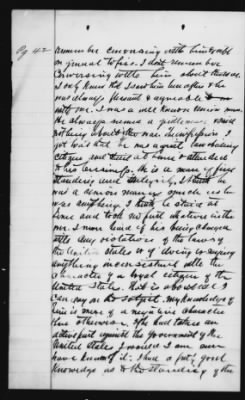 Pg 42 remember conversing with him &
on general topics. I don't remember
conversing with him about that as
I only knew that I saw him here after & he
was always pleasant & agreeable
with me. I was a well known Union man.
He always seemed a gentleman would
nothing about the war. The impression I
got was that he was a quiet law abiding
citizen and at home & attended
to his business. He is a man of fine
standing and integrity. I think he
was a Union man as much as he
was anything. I think he staid at
home and took no part whatever in the
war. I never heard of his being charged
with any violation of the laws of
the United States or of doing or saying
anything inconsistent with the
character of a loyal citizen of the
United States. That is about all I
can say on the subject. My knowledge of
him is more of a negative character
than otherwise. If he had taken an
active part against the Government of the
United States I would I am sure
have known of it. I had a pretty good
knowledge as to the standing of the